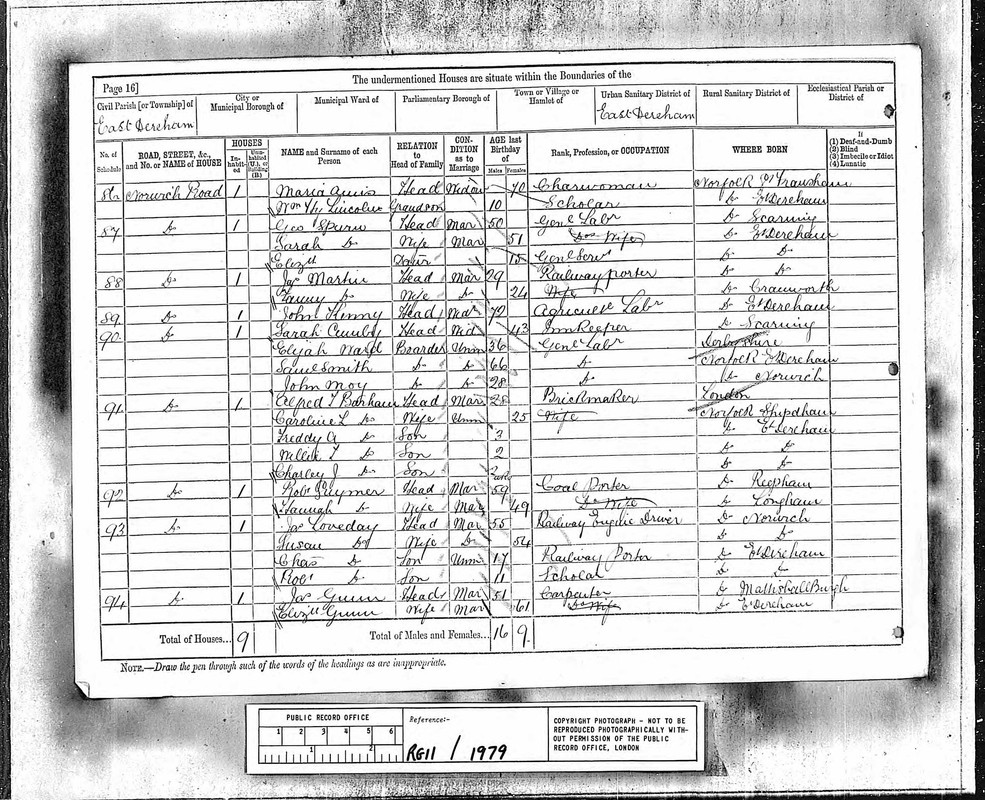 The undermentioned Houses are situate within the Boundaries of the
Page 16]
Civil Parish [or Township] of
City or Municipal Borough of
Municipal Ward of
Parliamentary Borough of
Town or Village or Hamlet of
Urban Sanitary District of
Rural Sanitary District of
Ecclesiastical Parish or District of
East Dereham
East Dereham
No. of Schedule
ROAD, STREET, &c., and No. or NAME of HOUSE
HOUSES
Inhabited
Uninhabited (U.), or Building (B.)
NAME and Surname of each Person
RELATION to Head of Family
CONDITION as to Marriage
AGE last Birthday of
Males
Females
Rank, Profession, or OCCUPATION
WHERE BORN
If
(1) Deaf-and-Dumb
(2) Blind
(3) Imbecile or Idiot
(4) Lunatic
86 Norwich Road 1 Maria Head Widow 70 Charwoman Norfolk
Wm Hy Lincoln Grandson 10 Scholar Do Et Dereham
87 Do 1 Geo Head Mar 50 Genl Labr Do Scarning
Sarah Do Wife Mar 51 Do Wife Do Et Dereham
Elizth 15 Genl Servt Do Do
88 Do 1 Jas Martin Head Mar 29 Railway porter Do Do
Fanny Do Wife Do 24 Wife Do Cranworth
89 Do 1 John Head Mar 72 Labr Do Et Dereham
90 Do 1 Sarah Head Wid 43 Inn Keeper Do Scarning
Elijah Ward Boarder Unm 36 Genl Labr Derbyshire
Saml Smith Do Do 66 Do Norfolk Et Dereham
John Moy Do Do 28 Do Do Norwich
91 Do 1 Alfred T Barham Head Mar 28 Brickmaker London
Caroline L Do Wife Unm 25 Wife Norfolk Shipdham
Freddy A Do Son 3 Do Et Dereham
Willie T Do Son 2 Do Do
Charley J Do Son Do Do
92 Do 1 Robt Head Mar 59 Coal Porter Do Reepham
Hannah Do Wife Mar 49 Do Wife Do Longham
93 Do 1 Jas Loveday Head Mar 55 Railway Engine Driver Do Norwich
Susan Do Wife Do 54 Do Do
Chas Do Son Unm 17 Railway Porter Do Et Dereham
Robt Do Son 11 Scholar Do Do
94 Do 1 Jas Gunn Head Mar 51 Carpenter Do Mattishall Burgh
Elizth Gunn Wife Mar 61 Do Wife Do Et Dereham
Total of Houses... 9
Total of Males and Females... 16 9
NOTE.—Draw the pen through such of the words of the headings as are inappropriate.
PUBLIC RECORD OFFICE
1 2 3 4 5 6
1 2
Reference:-
RG11 / 1979
COPYRIGHT PHOTOGRAPH - NOT TO BE
REPRODUCED PHOTOGRAPHICALLY WITH-
OUT PERMISSION OF THE PUBLIC
RECORD OFFICE, LONDON